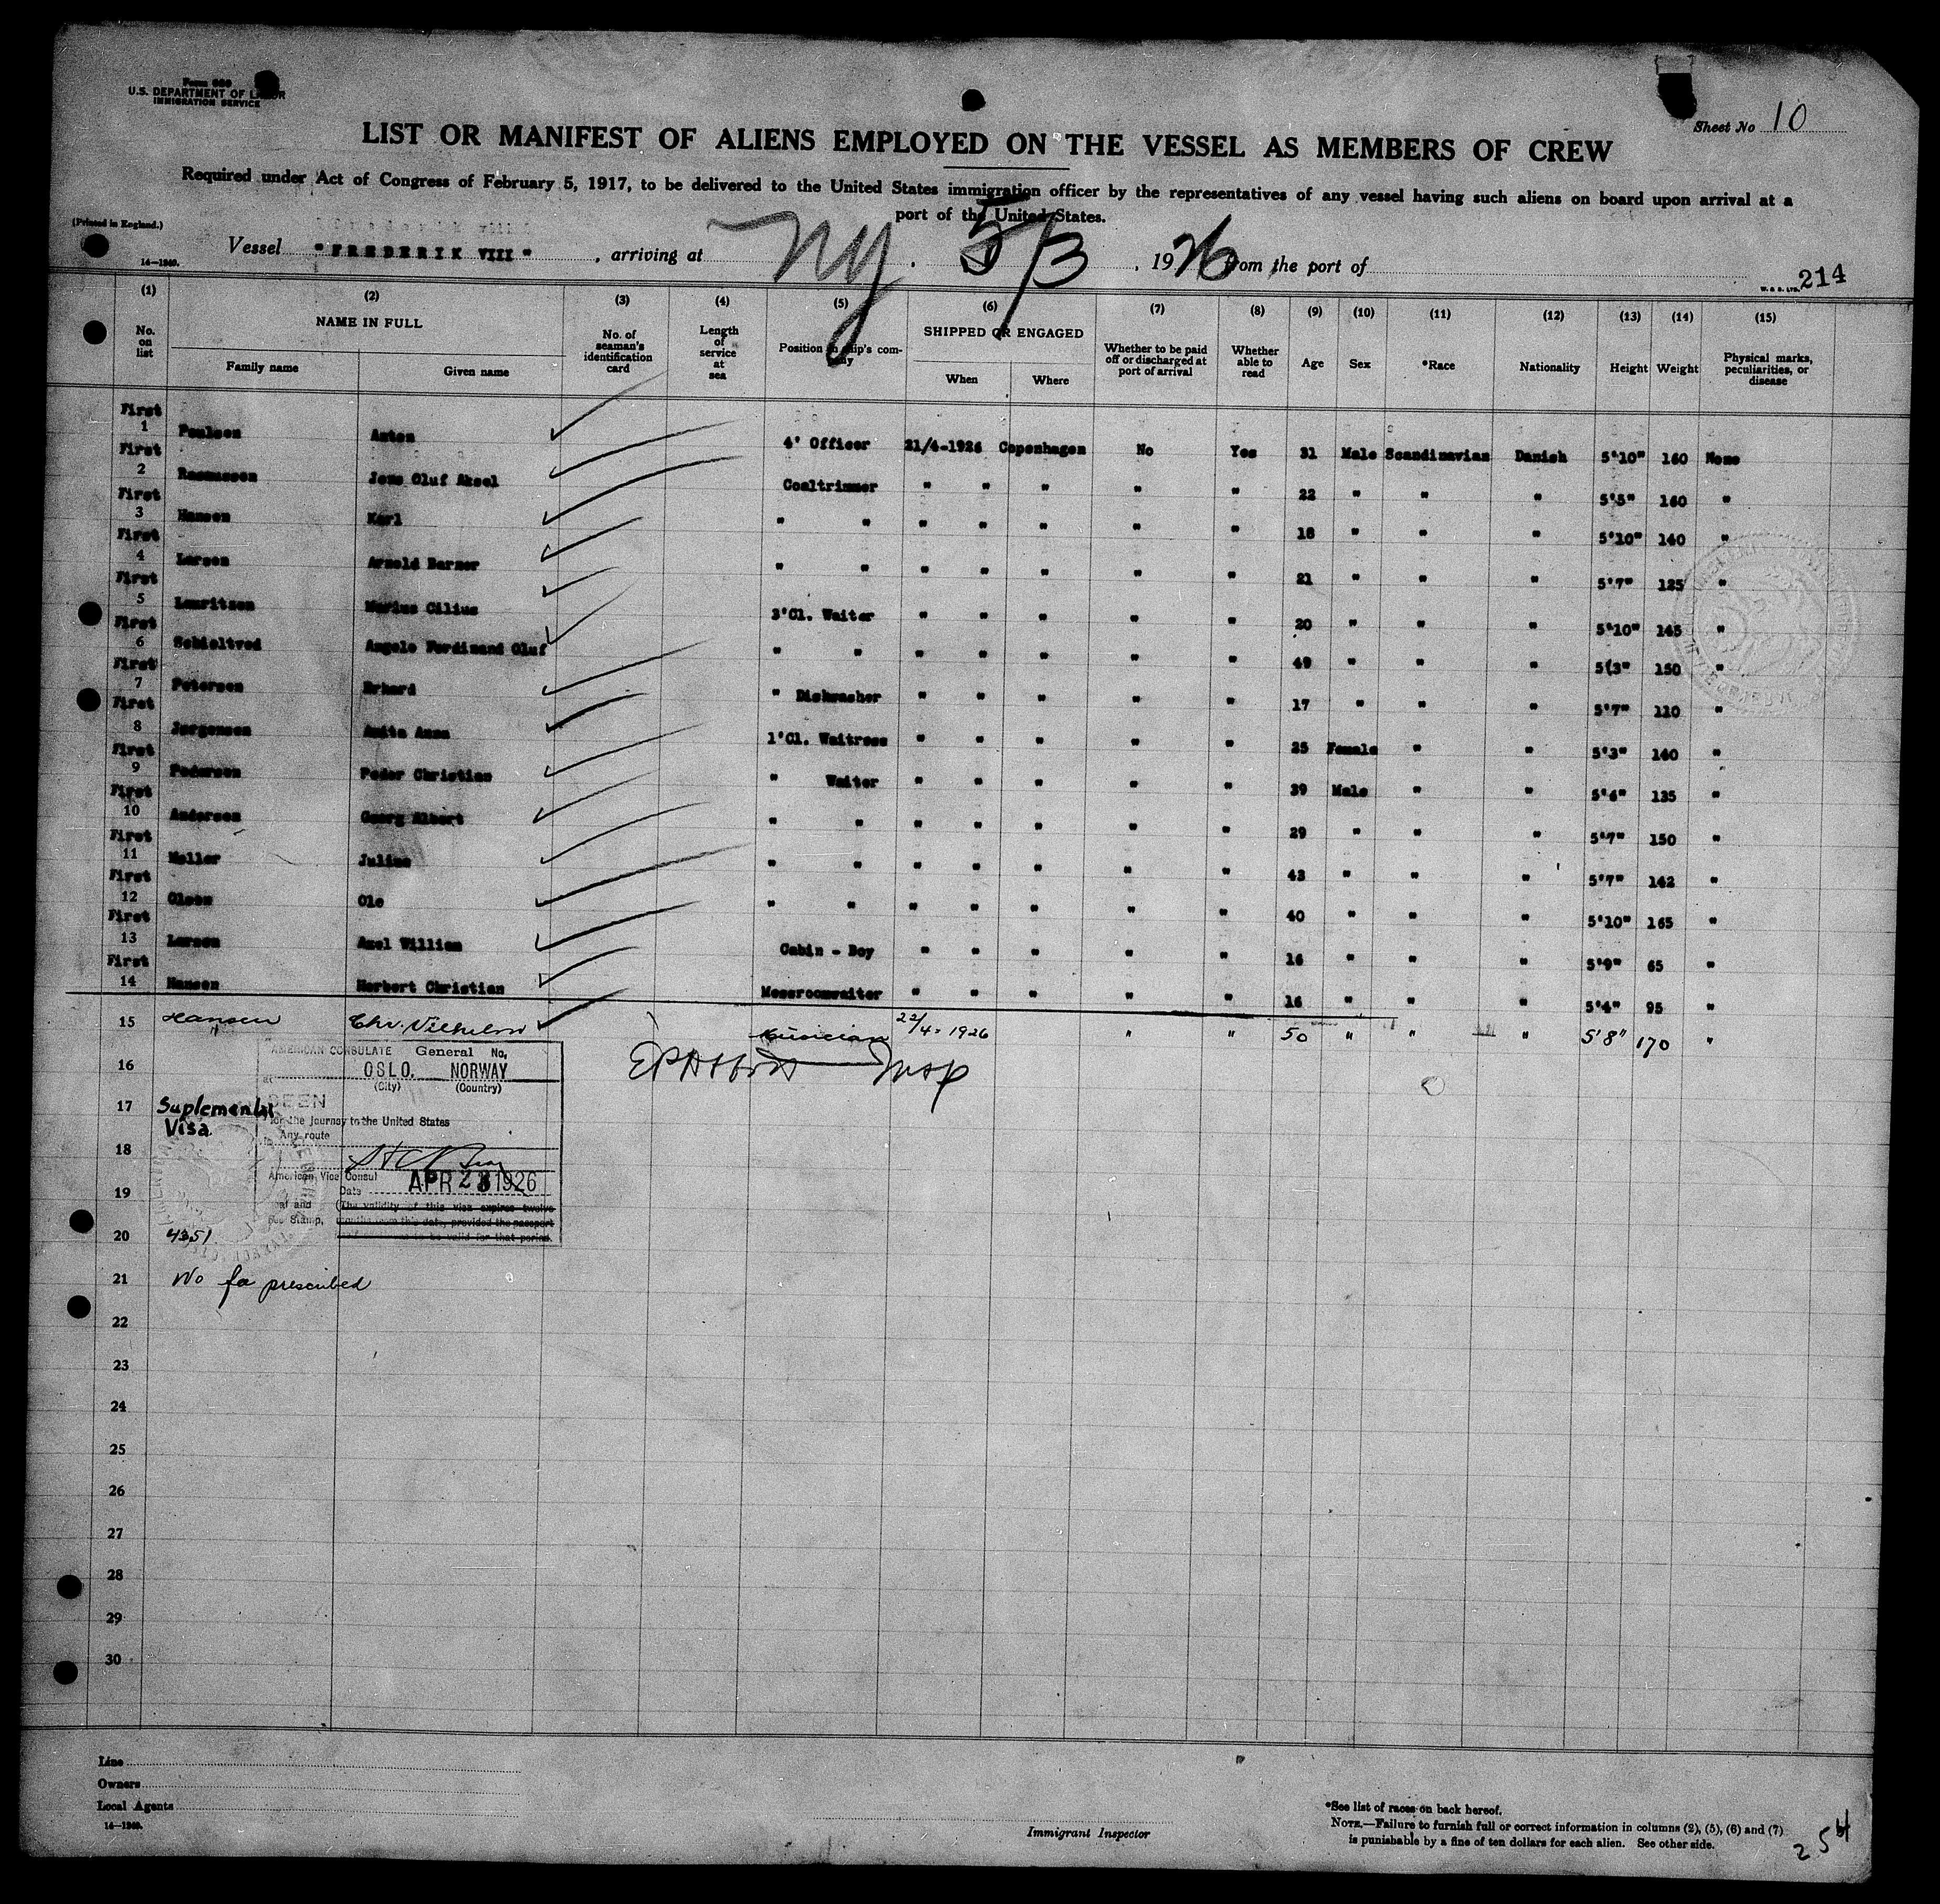 Form 680
U.S. DEPARTMENT OF LABOR
IMMIGRATION SERVICE
Sheet No 10
LIST OR MANIFEST OF ALIENS EMPLOYED ON THE VESSEL AS MEMBERS OF CREW
Required under Act of Congress of February 5, 1917, to be delivered to the United States immigration officer by the representatives of any vessel having such aliens on board upon arrival at a
port of the United States.
(Printed in England.)
Vessel "FREDERIK VIII", arriving at NY. 5/3, 1926 from the port of
14—1240.
W. & S. LTD. 214
(1) (2) (3) (4) (5) (6) (7) (8) (9) (10) (11) (12) (13) (14) (15)
No. on list NAME IN FULL Family name Given name No. of seaman's identification card Length of service at sea Position in ship's company SHIPPED OR ENGAGED When Where Whether to be paid off or discharged at port of arrival Whether able to read Age Sex *Race Nationality Height Weight Physical marks, peculiarities, or disease
First
1 Poulsen Anton 4' Officer 21/4-1926 Copenhagen No Yes 31 Male Scandinavian Danish 5'10" 160 None
First
2 Rasmussen Jens Oluf Aksel Coaltrimmer " " " " " 22 " " " 5'5" 160 "
First
3 Hansen Karl " " " " " " " 18 " " " 5'10" 140 "
First
4 Larsen Arnold Barner " " " " " " " 21 " " " 5'7" 125 "
First
5 Lauritzen Marius Cilius 3'Cl. Waiter " " " " " 20 " " " 5'10" 145 "
First
6 Schioltved Angelo Ferdinand Oluf " " " " " " " 49 " " " 5'3" 150 "
First
7 Petersen Erhard " Dishwasher " " " " " 17 " " " 5'7" 110 "
First
8 Jørgensen Anita Anna 1'Cl. Waitress " " " " " 25 Female " " 5'3" 140 "
First
9 Pedersen Peder Christian " Waiter " " " " " 39 Male " " 5'6" 135 "
First
10 Andersen Georg Albert " " " " " " " 29 " " " 5'7" 150 "
First
11 Møller Julius " " " " " " " 43 " " " 5'7" 142 "
First
12 Olsen Ole " " " " " " " 40 " " " 5'10" 165 "
First
13 Larsen Axel William Cabin - Boy " " " " " 16 " " " 5'0" 65 "
First
14 Hansen Herbert Christian Messroomwaiter " " " " " 16 " " " 5'4" 95 "
15 Hansen Chr. Vilhelm Musician 22/4- 1926 " " 50 " " " 5'8" 170 "
16
AMERICAN CONSULATE General No,
at OSLO, NORWAY
(City) (Country)
Insp
17 Suplemental
Visa
SEEN
for the journey to the United States
Any route
18
American Vice Consul
Date APR 23 1926
19
Seal and
Fee Stamp,
(The validity of this visa expires twelve
months from this date, provided the passport
continues to be valid for that period.
20 4351
21 No fee prescribed
22
23
24
25
26
27
28
29
30
Line
Owners
Local Agents
14—1240.
Immigrant Inspector
*See list of races on back hereof.
NOTE.—Failure to furnish full or correct information in columns (2), (5), (6) and (7)
is punishable by a fine of ten dollars for each alien. See other side.
254